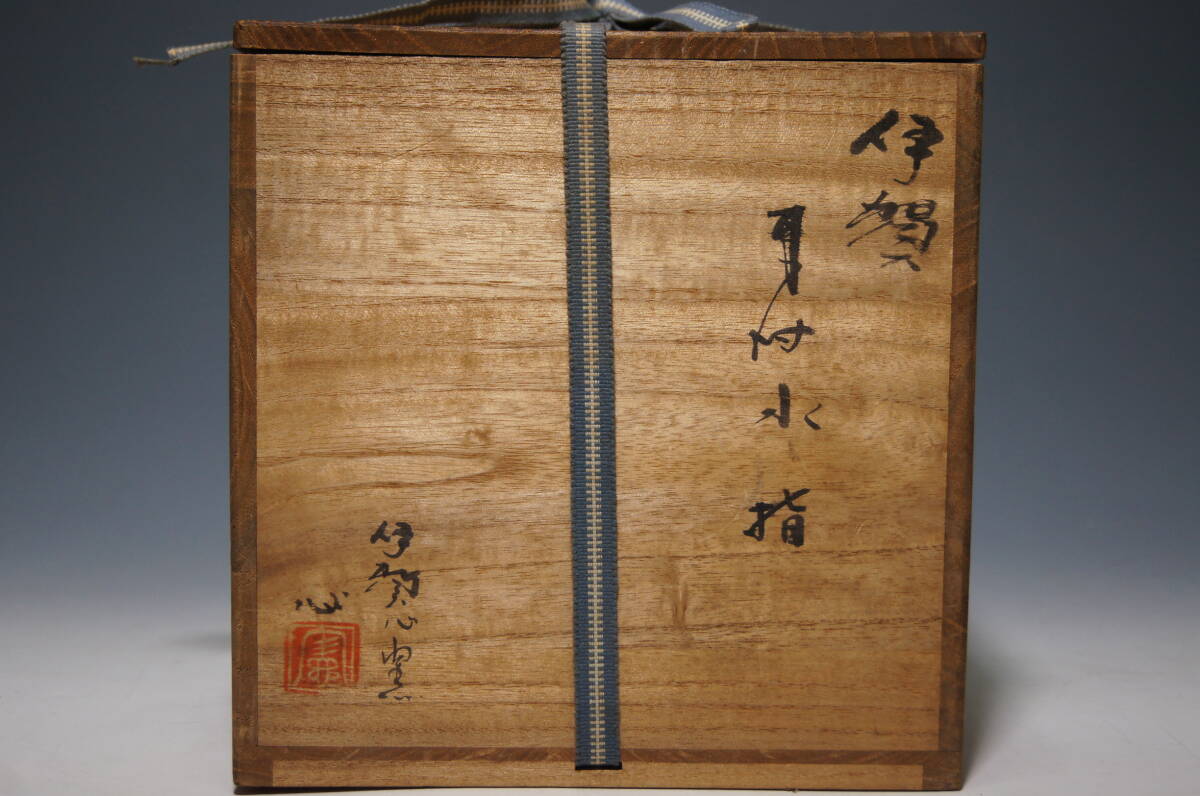 伊賀
耳付水指
伊賀心窯
心